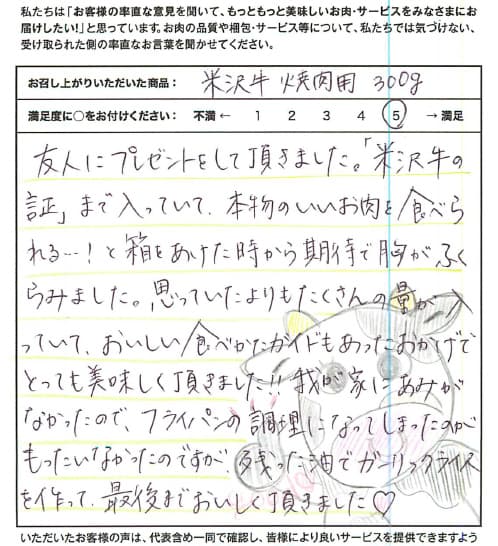 私たちは「お客様の率直な意見を聞いて、もっともっと美味しいお肉・サービスをみなさまにお
届けしたい!」と思っています。お肉の品質や梱包・サービス等について、私たちでは気づけない、
受け取られた側の率直なお言葉を聞かせてください。
お召し上がりいただいた商品: 米沢牛 焼肉用 300g
満足度に○をお付けください: 不満 ← 1 2 3 4 5 → 満足
友人にプレゼントをして頂きました。「米沢牛の
証」まで入っていて、本物のいいお肉を食べら
れる…!と箱をあけた時から期待で胸がふく
らみました。思っていたよりもたくさんの量が入
っていて、おいしい食べかたガイドもあったおかげで
とっても美味しく頂きました!!我が家にあみが
なかったので、フライパンの調理になってしまったのが
もったいなかったのですが、残った油でガーリックライス
を作って、最後までおいしく頂きました♡
いただいたお客様の声は、代表含め一同で確認し、皆様により良いサービスを提供できますよう